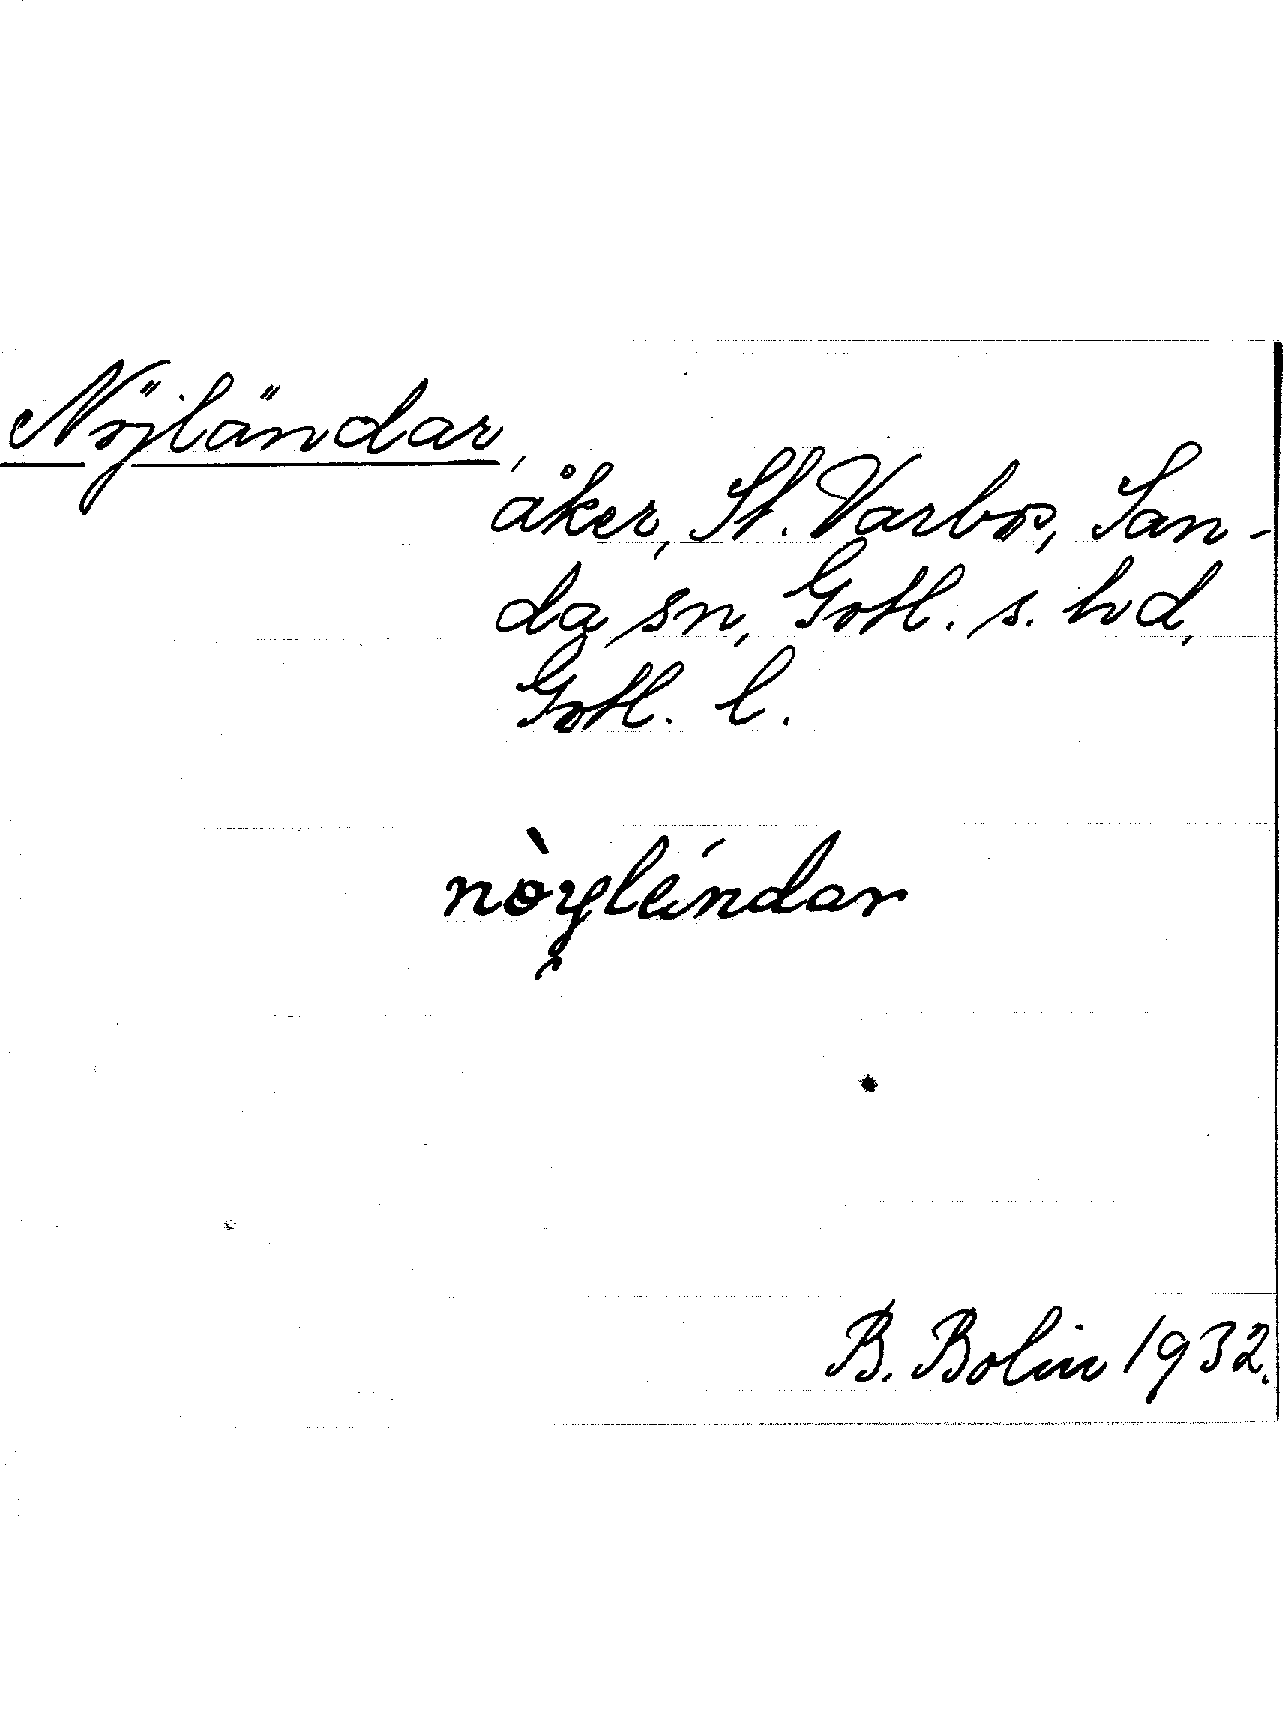 Nöjländar,
åker, St. Varbos, San-
da sn, Gotl. s. hd,
Gotl. l.
nòyleíndar
B. Bolin 1932.